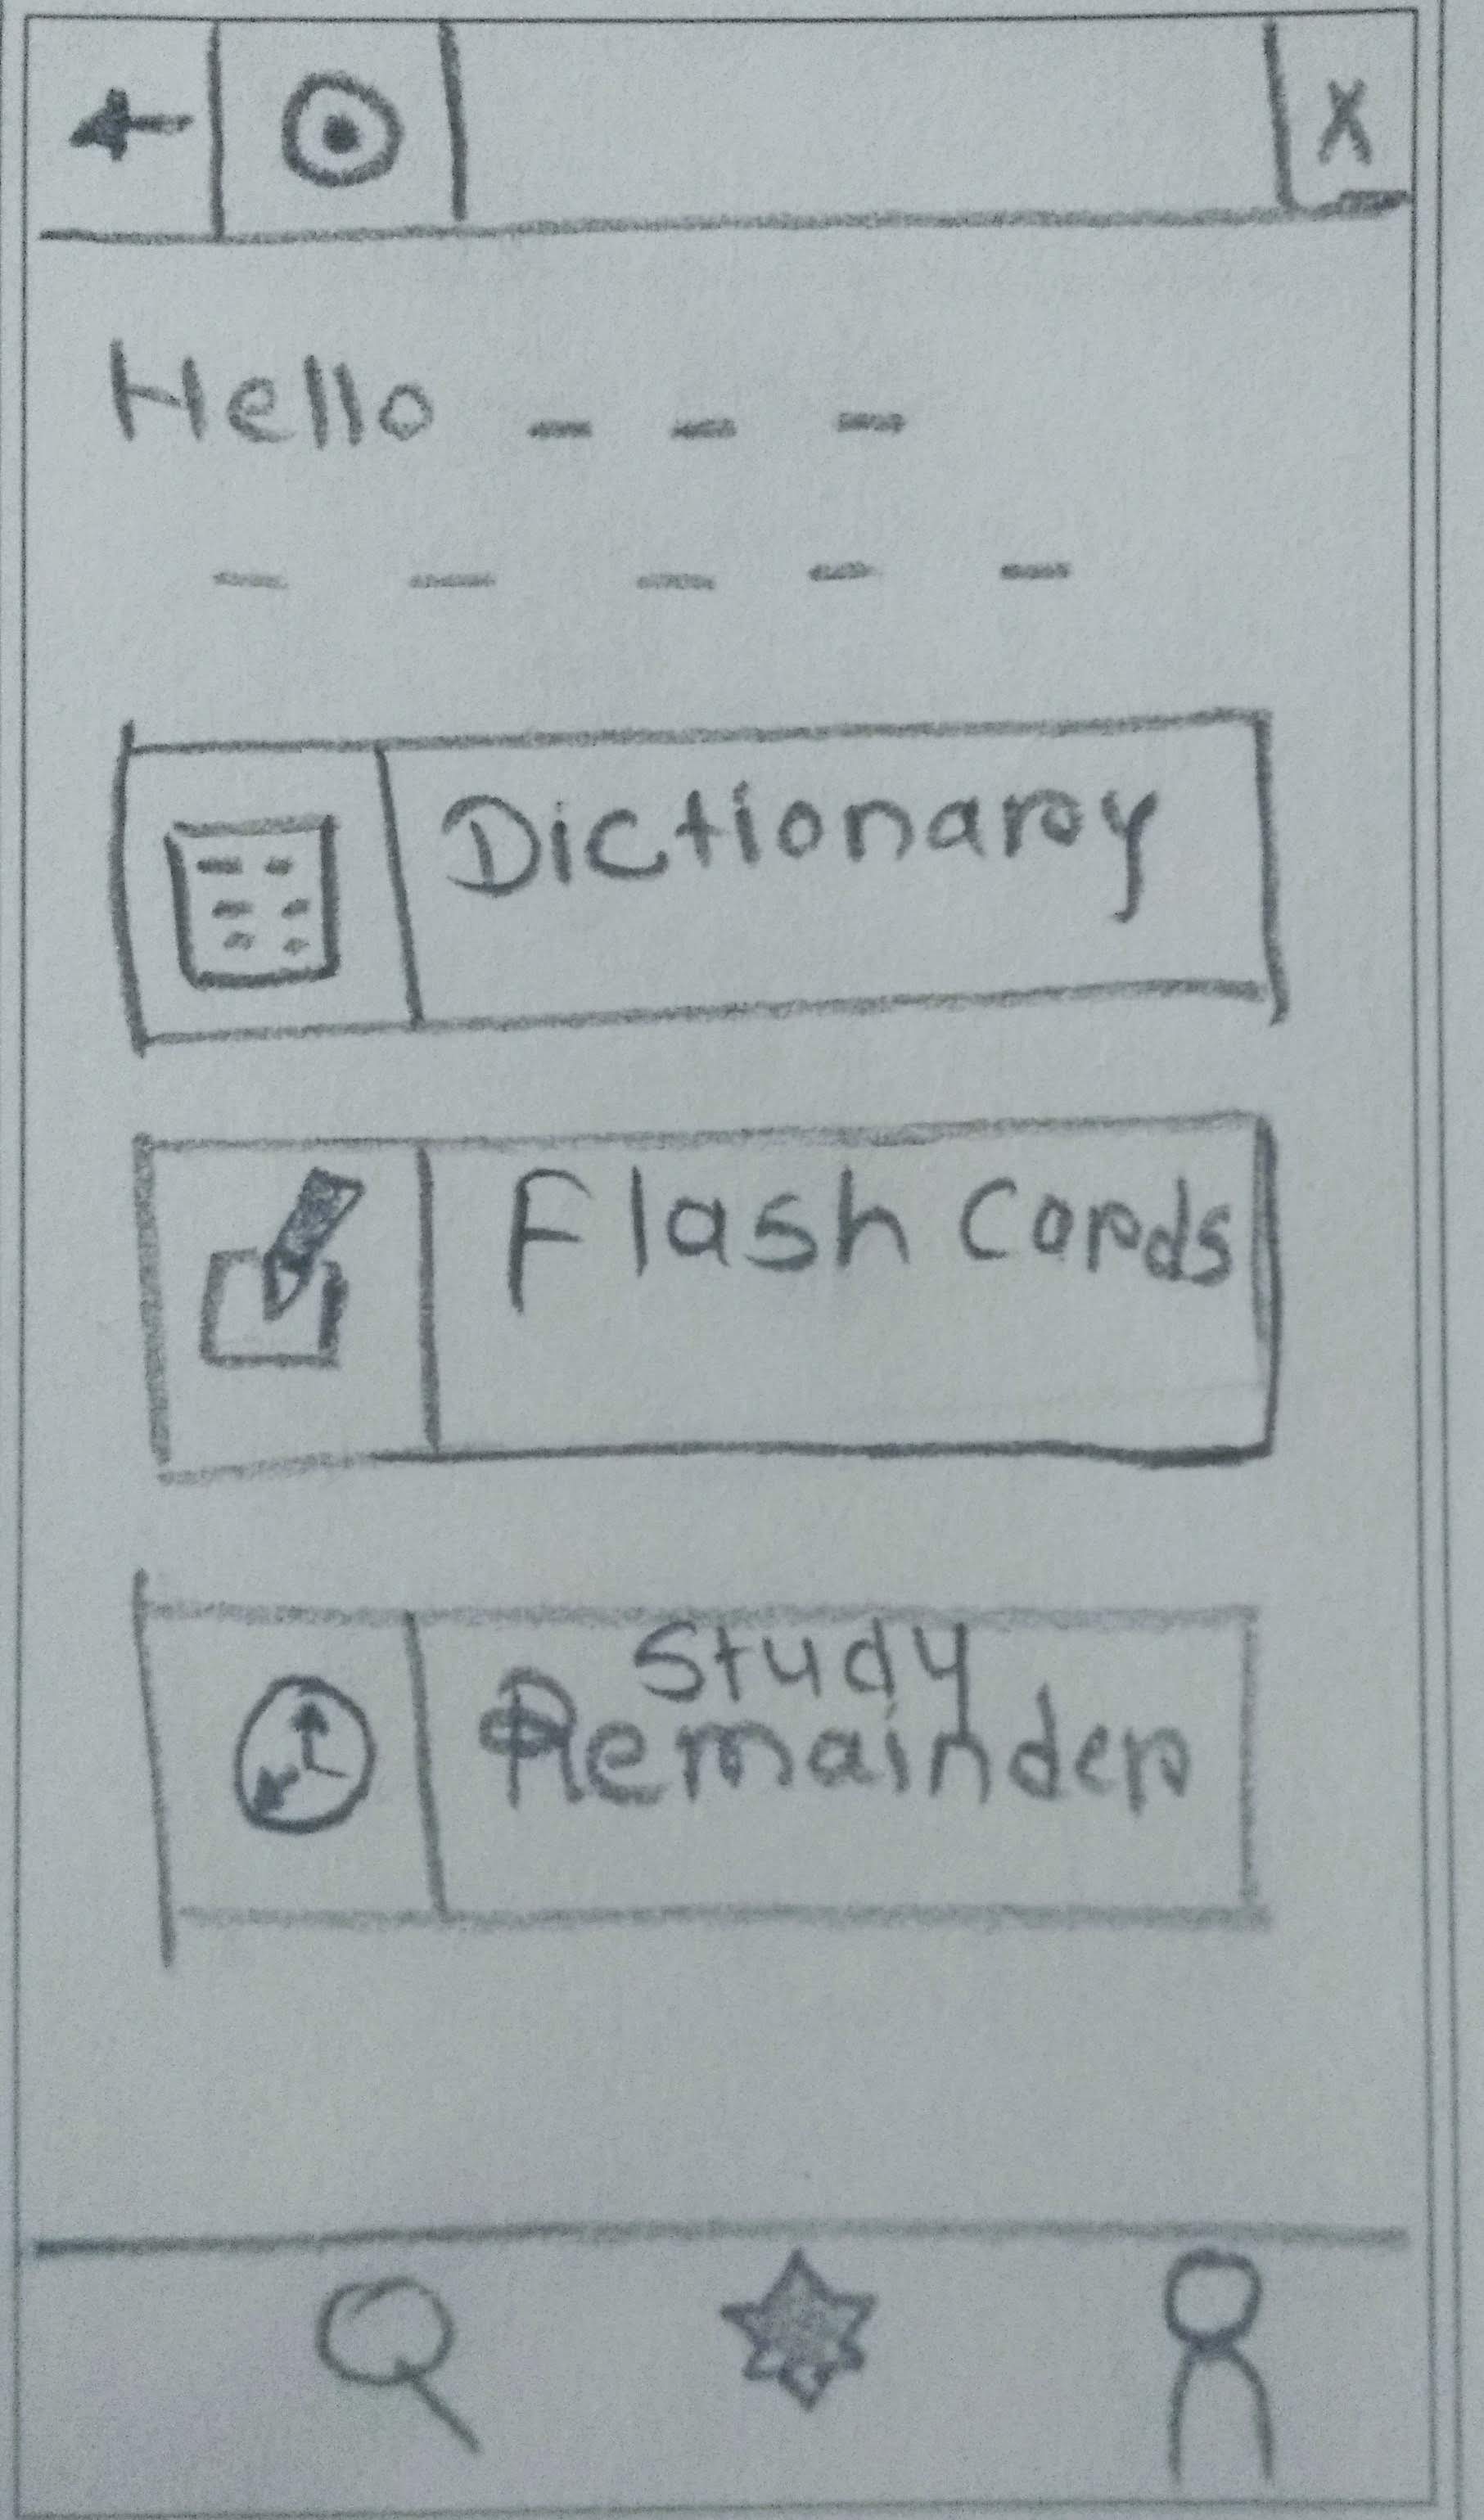 X
Hello _ _ _
_ _ _ _ _
Dictionary
Flash Cards
Study
Remainder